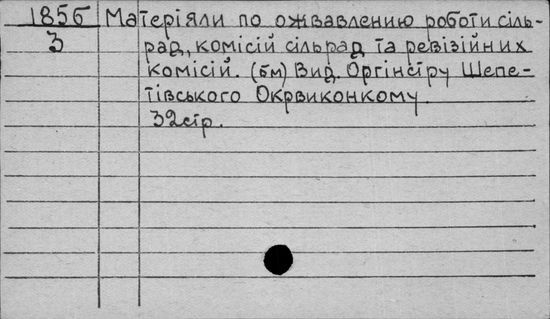 1856 Матеріяли по ожвавленню роботи сіль-
3 рад, комісій сільрад та ревізійних
комісій. (бм) Вид. Оргінстру Шепе-
тівського Окрвиконкому.
32стр.